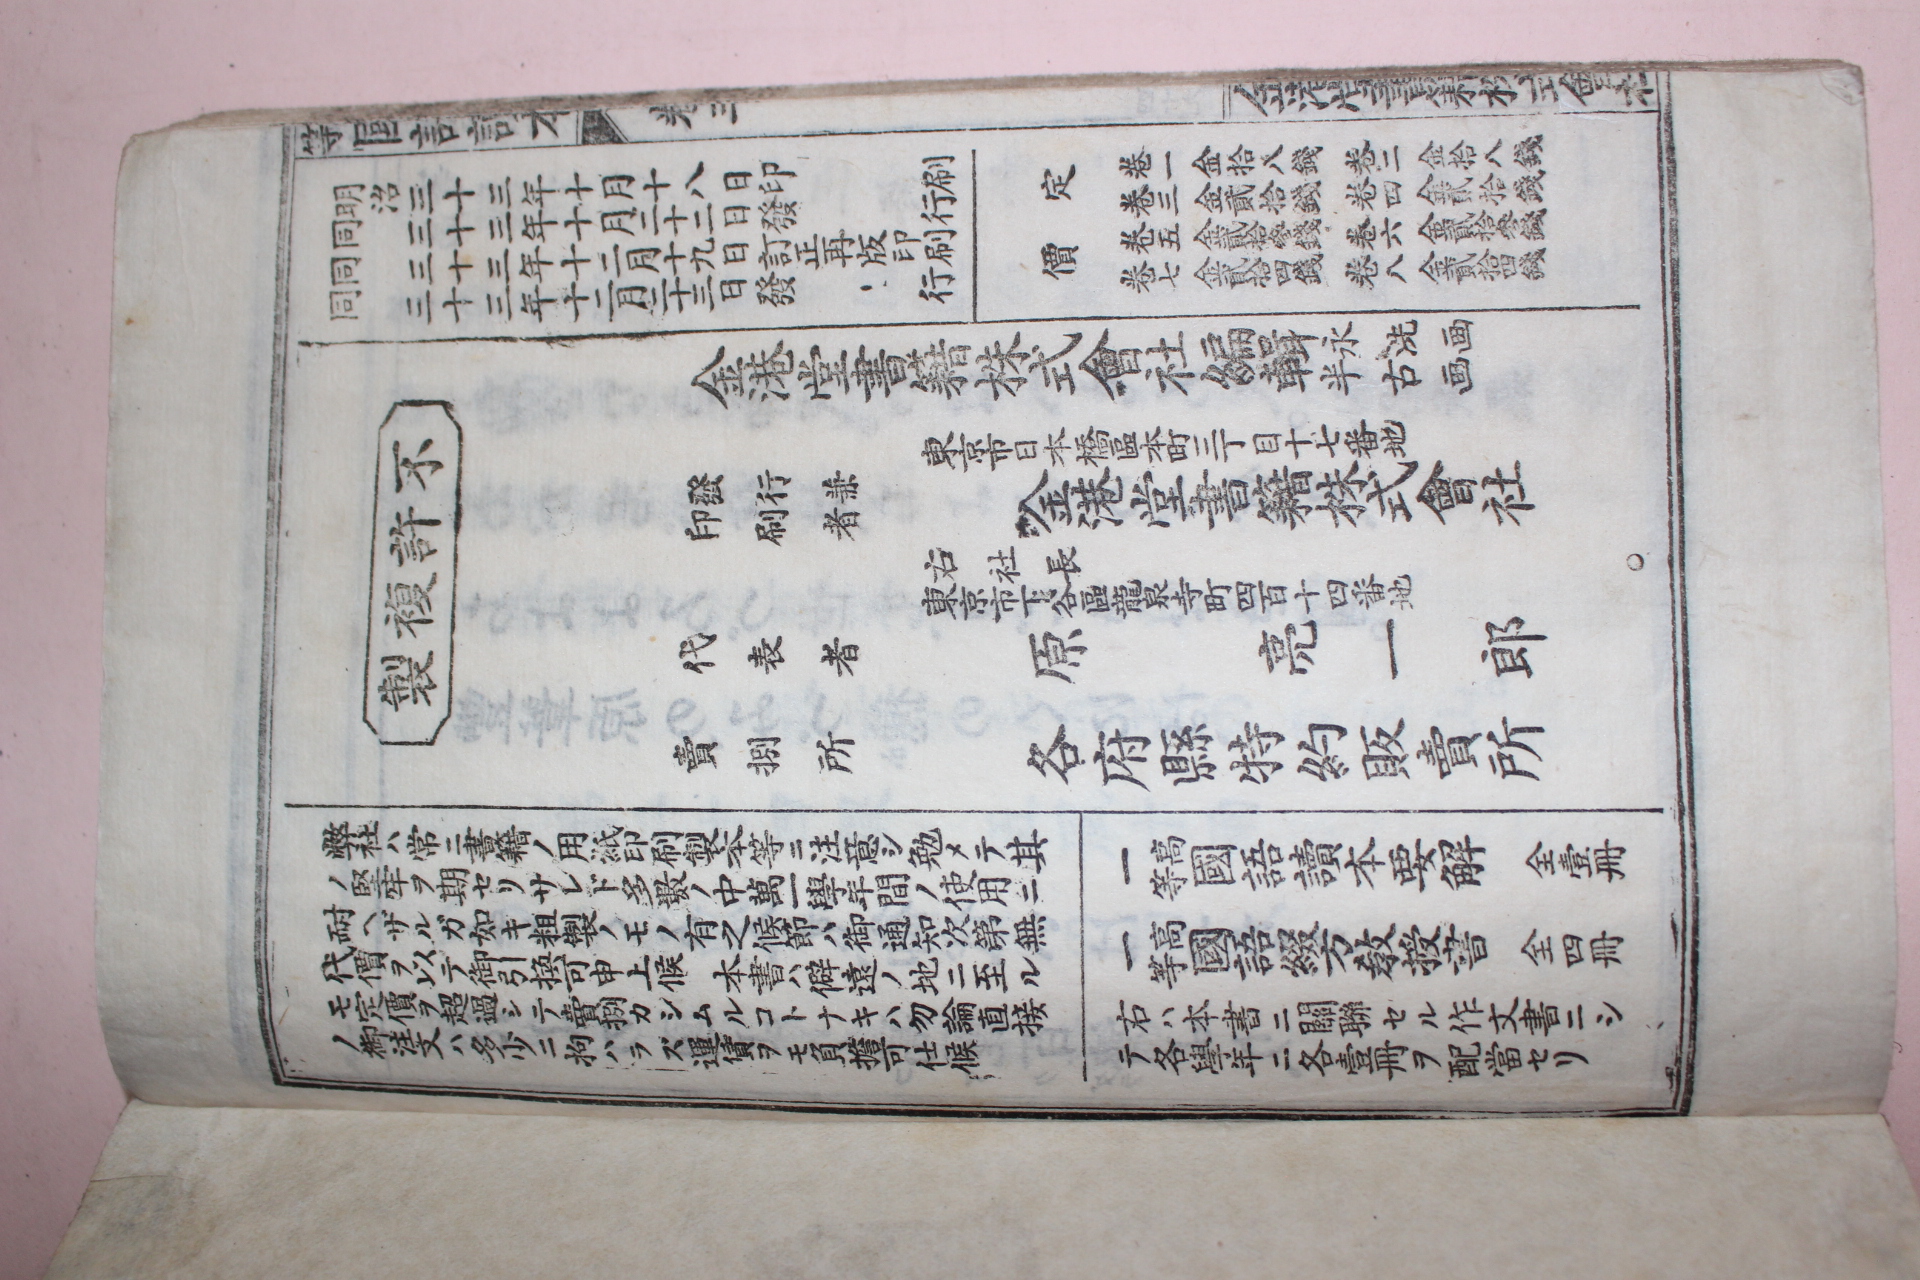 等國語讀本 卷三 金港堂書籍株式會社
明治三十三年十月十八日印刷
同三十三年十月二十二日發行
同三十三年十二月十九日訂正再版印刷
同三十三年十二月二十三日發行
定價
卷一 金拾八錢 卷二 金拾八錢
卷三 金貳拾錢 卷四 金貳拾錢
卷五 金貳拾參錢 卷六 金貳拾參錢
卷七 金貳拾四錢 卷八 金貳拾四錢
金港堂書籍株式會社編輯
永洗画
半古画
不許複製
東京市日本橋區本町三丁目十七番地
發行兼
印刷者
金港堂書籍株式會社
右社長
東京市下谷區龍泉寺町四百十四番地
代表者 原亮一郎
賣捌所 各府縣特約販賣所
弊社ハ常ニ書籍ノ用紙印刷製本等ニ注意シ勉メテ其
ノ堅牢ヲ期セリサレド多數ノ中萬一學年間ノ使用ニ
耐ヘザルガ如キ粗製ノモノ有之候節ハ御通知次第無
代價ヲ以テ御引換可申上候 本書ハ僻遠ノ地ニ至ル
モ定價ヲ超過シテ賣捌カシムルコトナキハ勿論直接
ノ御注文ハ多少ニ拘ハラズ運賃ヲモ負擔可仕候
一高等國語讀本要解 全壹冊
一高等國語綴方教授書 全四冊
右ハ本書ニ關聯セル作文書ニシ
テ各學年ニ各壹冊ヲ配當セリ